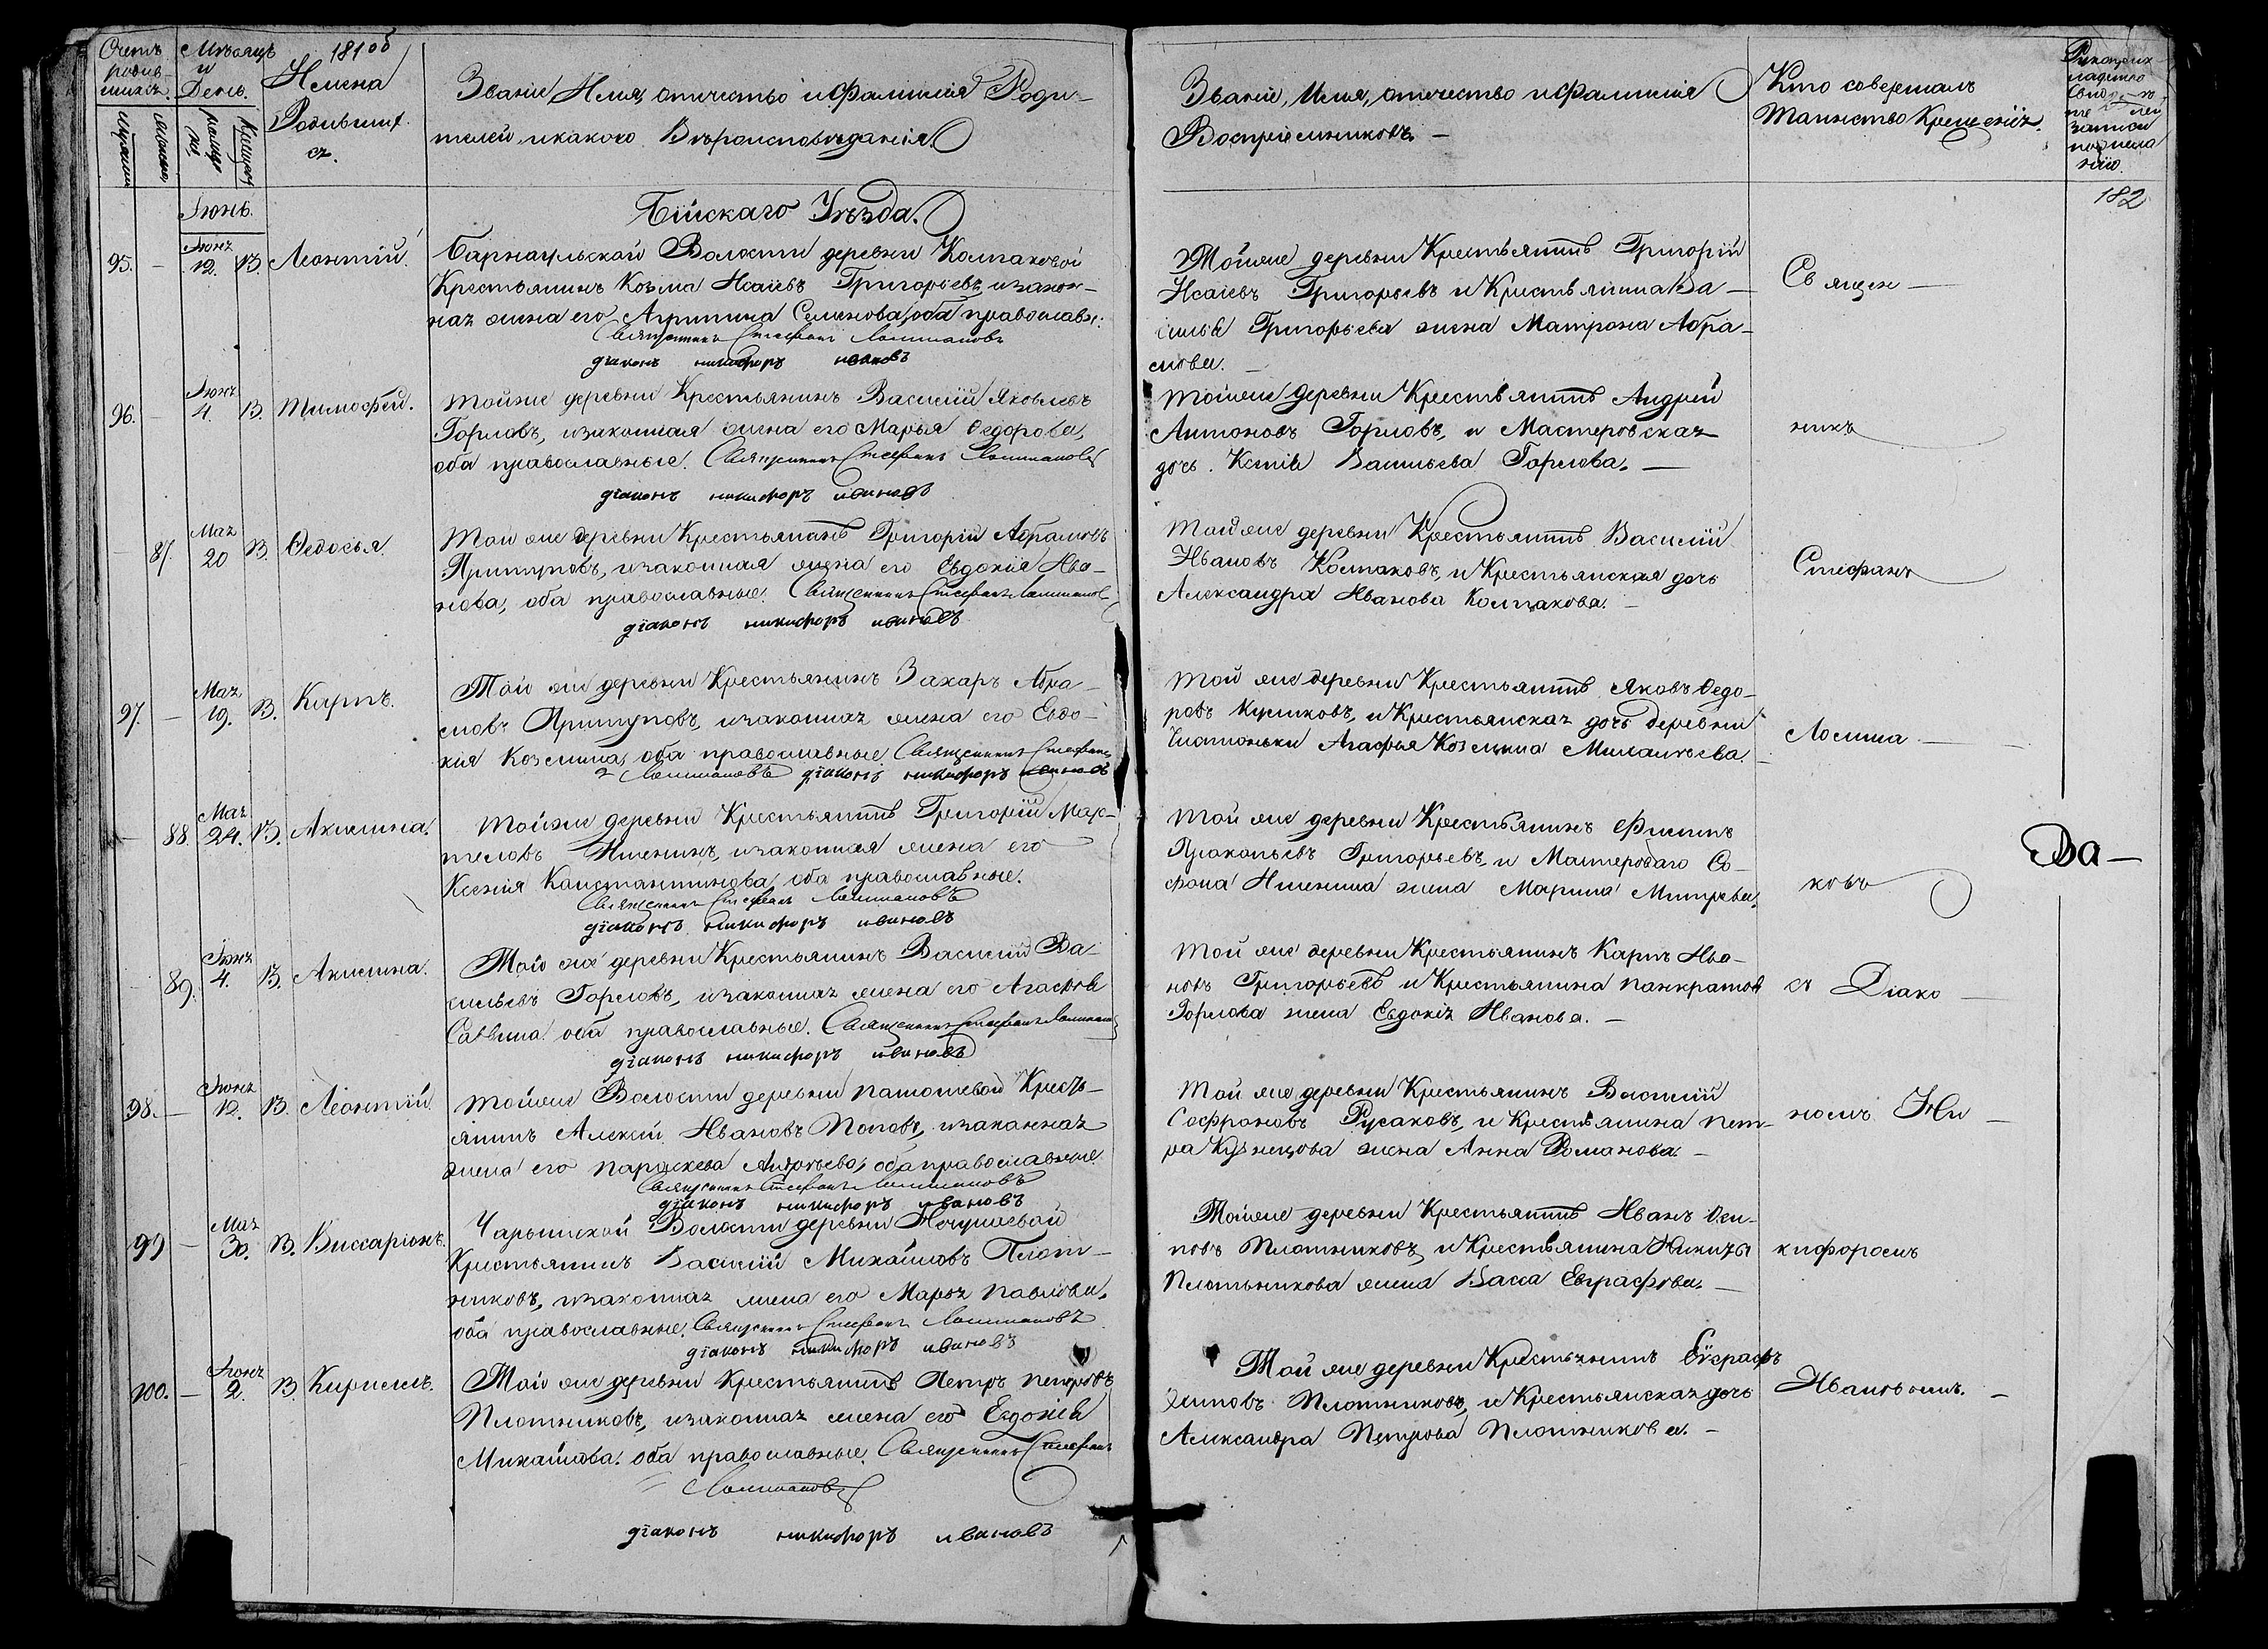 Счетъ родив-шихся.
Мѣсяцъ и День.
181 об
Имена Родившихся.
Званіе Имя, отчество и фамилія Роди-
телей, и какого Вѣроисповѣданія.
Званіе, Имя, отчество и фамилія
Воспріемниковъ. —
Кто совершалъ
Таинство Крещенія.
записи
по желанію.
182
Іюнь.
Бійскаго Уѣзда.
95. — Іюня 12. 13. Леонтій.
Барнаульской Волости деревни Колпаковой
Крестьянинъ Козма Исаіевъ Григорьевъ, и закон-
ная жена его Агрипина Семенова, оба православн:
Священникъ Стефанъ Лошмановъ
діаконъ никифоръ ивановъ
Тойже деревни Крестьянинъ Григорій
Исаіевъ Григорьевъ и Крестьянина Ва-
силья Григорьева жена Матрона Абра-
мова. —
Священ —
96. — Іюня 4. 13. Тимофей.
Тойже деревни Крестьянинъ Василій Яковлевъ
Горловъ, изаконная жена его Марья Ѳедорова,
оба православные. Священникъ Стефанъ Лошмановъ
діаконъ никифоръ ивановъ
Тойже деревни Крестьянинъ Андрей
Антоновъ Горловъ, и Мастеровская
дочь Васильева Горлова. —
никъ
— 87. Мая 20 13. Ѳедосья.
Той же деревни Крестьянинъ Григорій Абрамовъ
Притуповъ, изаконная жена его Евдокія Ива-
нова, оба православные. Священникъ Стефанъ Лошмановъ
діаконъ никифоръ ивановъ
Той же деревни Крестьянинъ Василій
Ивановъ Колпаковъ, и Крестьянская дочь
Александра Иванова Колпакова. —
Стефанъ
97. — Мая 19. 13. Карпъ.
Той же деревни Крестьянинъ Захаръ Абра-
мовъ Притуповъ, изаконная жена его Евдо-
кія Козмина, оба православные. Священникъ Стефанъ
Лошмановъ діаконъ никифоръ ивановъ
Той же деревни Крестьянинъ Яковъ Ѳедо-
ровъ Куликовъ, и Крестьянская дочь деревни
Агафья Козмина —
Лошма —
— 88. Мая 24. 13. Акилина.
Тойже деревни Крестьянинъ Григорій Мар-
теловъ изаконная жена его
Ксенія Константинова, оба православные.
Священникъ Стефанъ Лошмановъ
діаконъ никифоръ ивановъ
Той же деревни Крестьянинъ Филипъ
Прокопьевъ Григорьевъ, и Мастероваго Со-
фона жена Марина Митрева.
ковъ
Ва —
— 89. Іюня 4. 13. Акилина.
Той же деревни Крестьянинъ Василій Ва-
сильевъ Горловъ, изаконная жена его Агафья
Саввина оба православные. Священникъ Стефанъ Лошмановъ
діаконъ никифоръ ивановъ
Той же деревни Крестьянинъ Карпъ Ива-
новъ Григорьевъ и Крестьянина панкратов
Горлова жена Евдокія Иванова. —
съ Діако —
98. — Іюня 12. 13. Леонтій.
Тойже Волости деревни Кресть-
янинъ Алексій Ивановъ Поповъ, изаканная
жена его параскева оба православные.
Священникъ Стефанъ Лошмановъ
діаконъ никифоръ ивановъ
Той же деревни Крестьянинъ Василій
Софроновъ Русаковъ, и Крестьянина пет-
ра Кузнецова жена Анна Романова. —
номъ Ни —
99 — Мая 30. 13. Виссаріонъ.
Чарышской Волости деревни
Крестьянинъ Василій Михаиловъ Плот-
никовъ, изаконная жена его Марья Павлова,
оба православные. Священникъ Стефанъ Лошмановъ
діаконъ никифоръ ивановъ
Тойже деревни Крестьянинъ Иванъ Оси-
повъ Плотниковъ, и Крестьянина Никиты
Плотникова жена Васса Евграфова. —
кифоромъ
100. — Іюня 2. 13. Кирилъ.
Той же деревни Крестьянинъ Петръ петровъ
Плотниковъ, изаконная жена его Евдокія
Михаилова. оба православные. Священникъ Стефанъ
Лошмановъ
діаконъ никифоръ ивановъ
Той же деревни Крестьянинъ Евграфъ
Плотниковъ, и Крестьянская дочь
Александра Петрова Плотникова. —
Ивановымъ. —